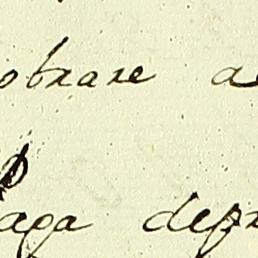 obrare a
aga depr